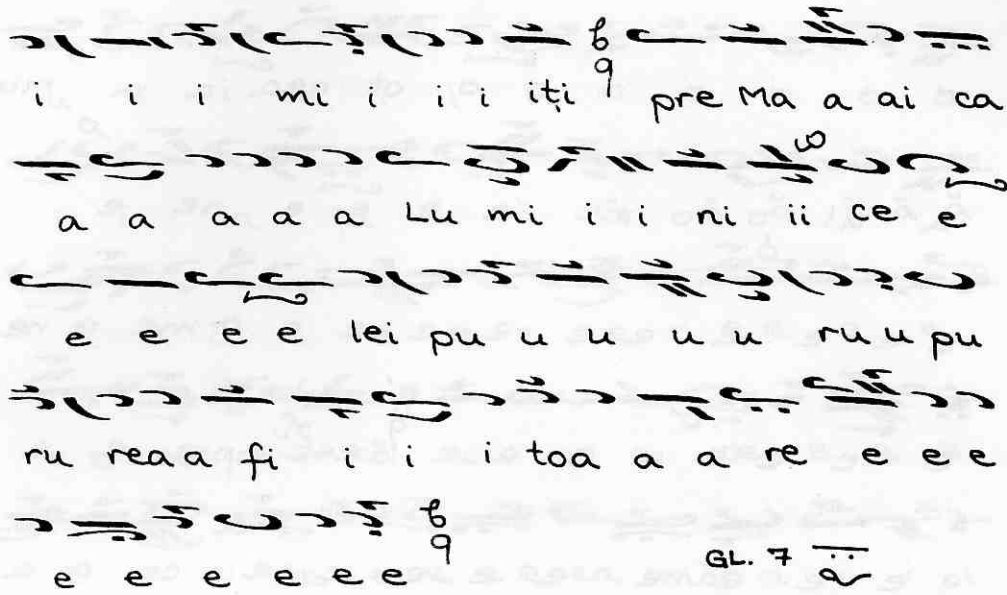 i i i mi i i i iți pre Ma a ai ca
a a a a a Lu mi i i ni ii ce e
e e e e lei pu u u u u ru u pu
ru rea a fi i i i toa a a re e e e
e e e e e e
GL. 7